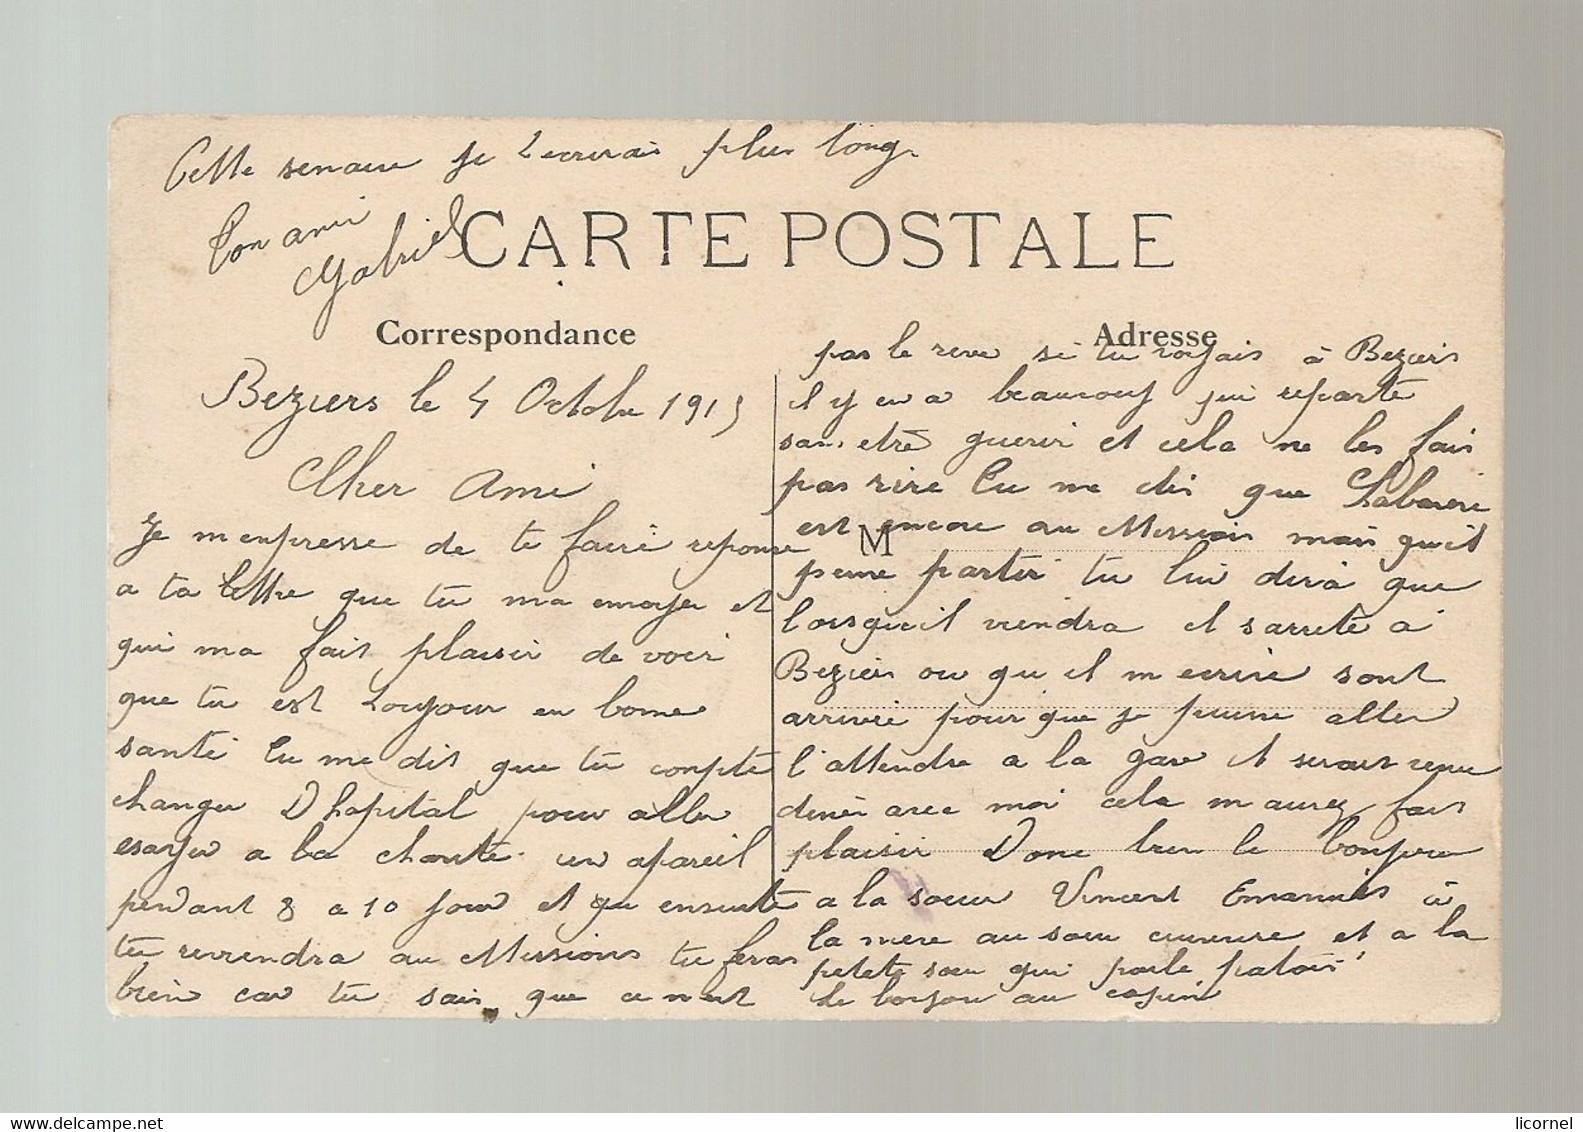 Cette semaine je t ecrirais plus long.
Ton ami
Gabriel
CARTE POSTALE
Correspondance
Adresse
Beziers le 4 Octobre 1915
Cher Ami
Je m enpresse de te faire reponse
a ta lettre que tu ma envoyer et
qui ma fait plaisir de voir
que tu est toujour en bonne
santé Tu me dit que tu conpte
changer D hopital pour aller
esayer a la un apareil
pendant 8 a 10 jour et qu ensuite
tu reviendra au Missions tu feras
bien car tu sais que ce n est
pas le reve si tu voyais à Beziers
il y en a beaucoup qui reparte
sans etre guerir et cela ne les fais
pas rire Tu me dis que
est encore au Missions mais qu il
M
pense partir tu lui dira que
lorsqu il viendra et s arrete à
Beziers ou qu il m ecrive sont
arrivée pour que je puisse aller
l attendre a la gare et serait venu
diner avec moi cela m aurez fait
plaisir Donc bien le bonjour
a la soeur Vincent à
la mere au soeur et a la
petete soeu qui parle patois
le bonjour au
delcampe.net
licornel